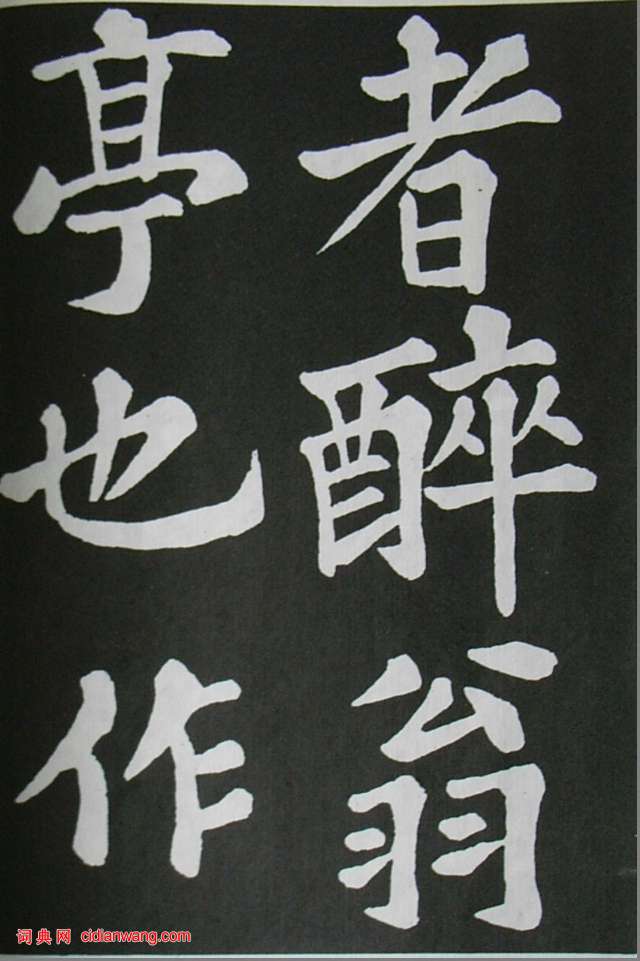 者醉翁
亭也作
词典网 cidianwang.com